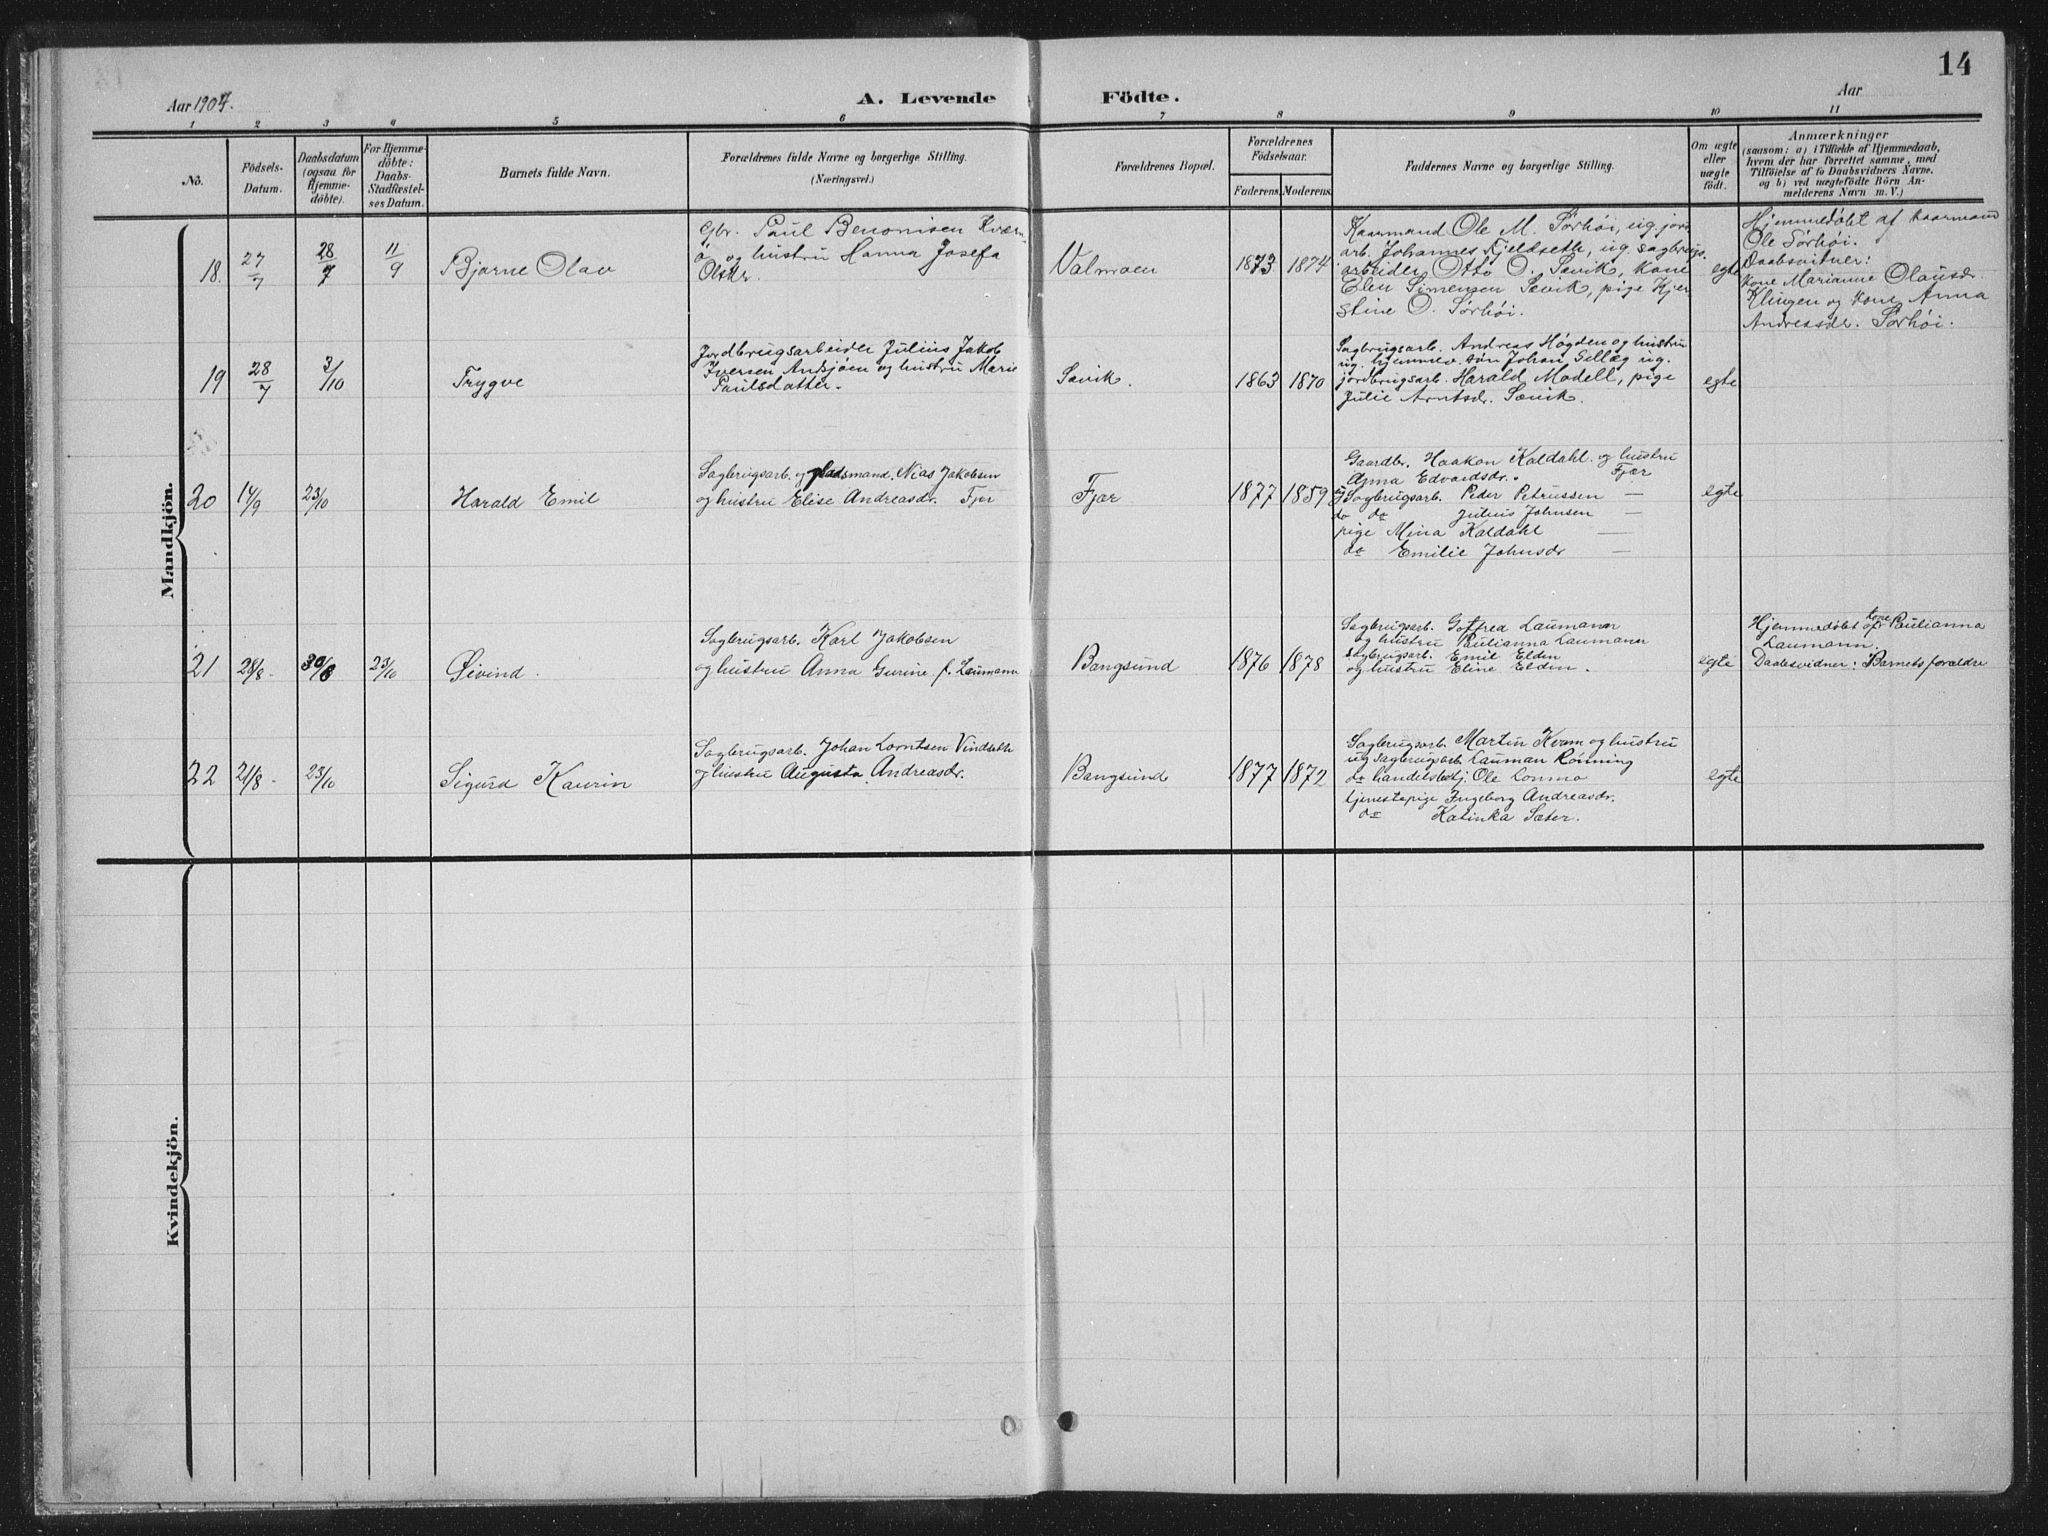 14
Aar 1907.
A. Levende Födte.
Aar
1 2 3 4 5 6 7 8 9 10 11
No.
Födsels-
Datum.
Daabsdatum
(ogsaa for
Hjemme-
döbte).
For Hjemme-
döbte:
Daabs-
Stadfæstel-
ses Datum.
Barnets fulde Navn.
Forældrenes fulde Navne og borgerlige Stilling.
(Næringsvei.)
Forældrenes Bopæl.
Forældrenes
Födselsaar.
Faderens. Moderens.
Faddernes Navne og borgerlige Stilling.
Om ægte
eller
uægte
födt.
Anmærkninger
(saasom: a) i Tilfælde af Hjemmedaab,
hvem der har forrettet samme, med
Tilföielse af to Daabsvidners Navne,
og b) ved uægtefödte Börn An-
melderens Navn m. V.)
Mandkjön.
18.
27/7
28/7
11/9
Bjarne Olav
Gbr. Paul Benonisen Kværn-
ø og hustru Hanna Josefa
Olsdr.
Valmoen
1873
1874
Kaarmand Ole M. Sørhøi, ug. jord
arb. Johannes Kjeldseth, ug sagbrugs.
arbeider Otto O. Sævik, kone
Elen Simensen Sævik, pige Kjer
stine O. Sørhøi.
egte
Hjemmedøbt af kaarmand
Ole Sørhøi.
Daabsvitner:
Kone Marianne Olausdr.
Klingen og kone Anna
Andreasdr. Sørhøi.
19
28/7
3/10
Trygve
Jordbrugsarbeider Julius Jakob
Iversen Andsjøen og hustru Marie
Paulsdatter.
Sævik.
1863
1870
Sagbrugsarb. Andreas Høgden og hustru
ug. hjemmev. søn Johan Sellæg ug.
jordbrugsarb. Harald Modell, pige
Julie Arntsdr. Sævik.
egte
20
14/9
23/10
Harald Emil
Sagbrugsarb. og pladsmand. Nias Jakobsen
og hustru Elise Andreasdr. Fjær
Fjær
1877
1859
Gaardbr. Haakon Kaldahl og hustru
Anna Edvardsdr. Fjær
ug Sagbrugsarb. Peder Petrussen —
do do Julius Johnsen —
pige Mina Kaldahl —
do Emilie Johnsdr —
egte
21
28/8
30/8
23/10
Øivind.
Sagbrugsarb. Karl Jakobsen
og hustru Anna Gurine f. Laumann
Bangsund
1876
1878
Sagbrugsarb. Gotfred Laumann
og hustru Paulianna Laumann
Sagbrugsarb. Emil Elden
og hustru Eline Elden.
egte
Hjemmedøbt af kone Paulianna
Laumann.
Daabsvidner: Barnets forældre
22
21/8
23/10
Sigurd Kaurin
Sagbrugsarb. Johan Lorntsen Vindseth
og hustru Augusta Andreasdr.
Bangsund
1877
1872
Sagbrugsarb. Martin Kvam og hustru
ug sagbrugsarb Lauman Rönning
do handelsbetj. Ole Lonmo
tjenestepige Ingeborg Andreasdr.
do Katinka Sæter.
egte
Kvindekjön.